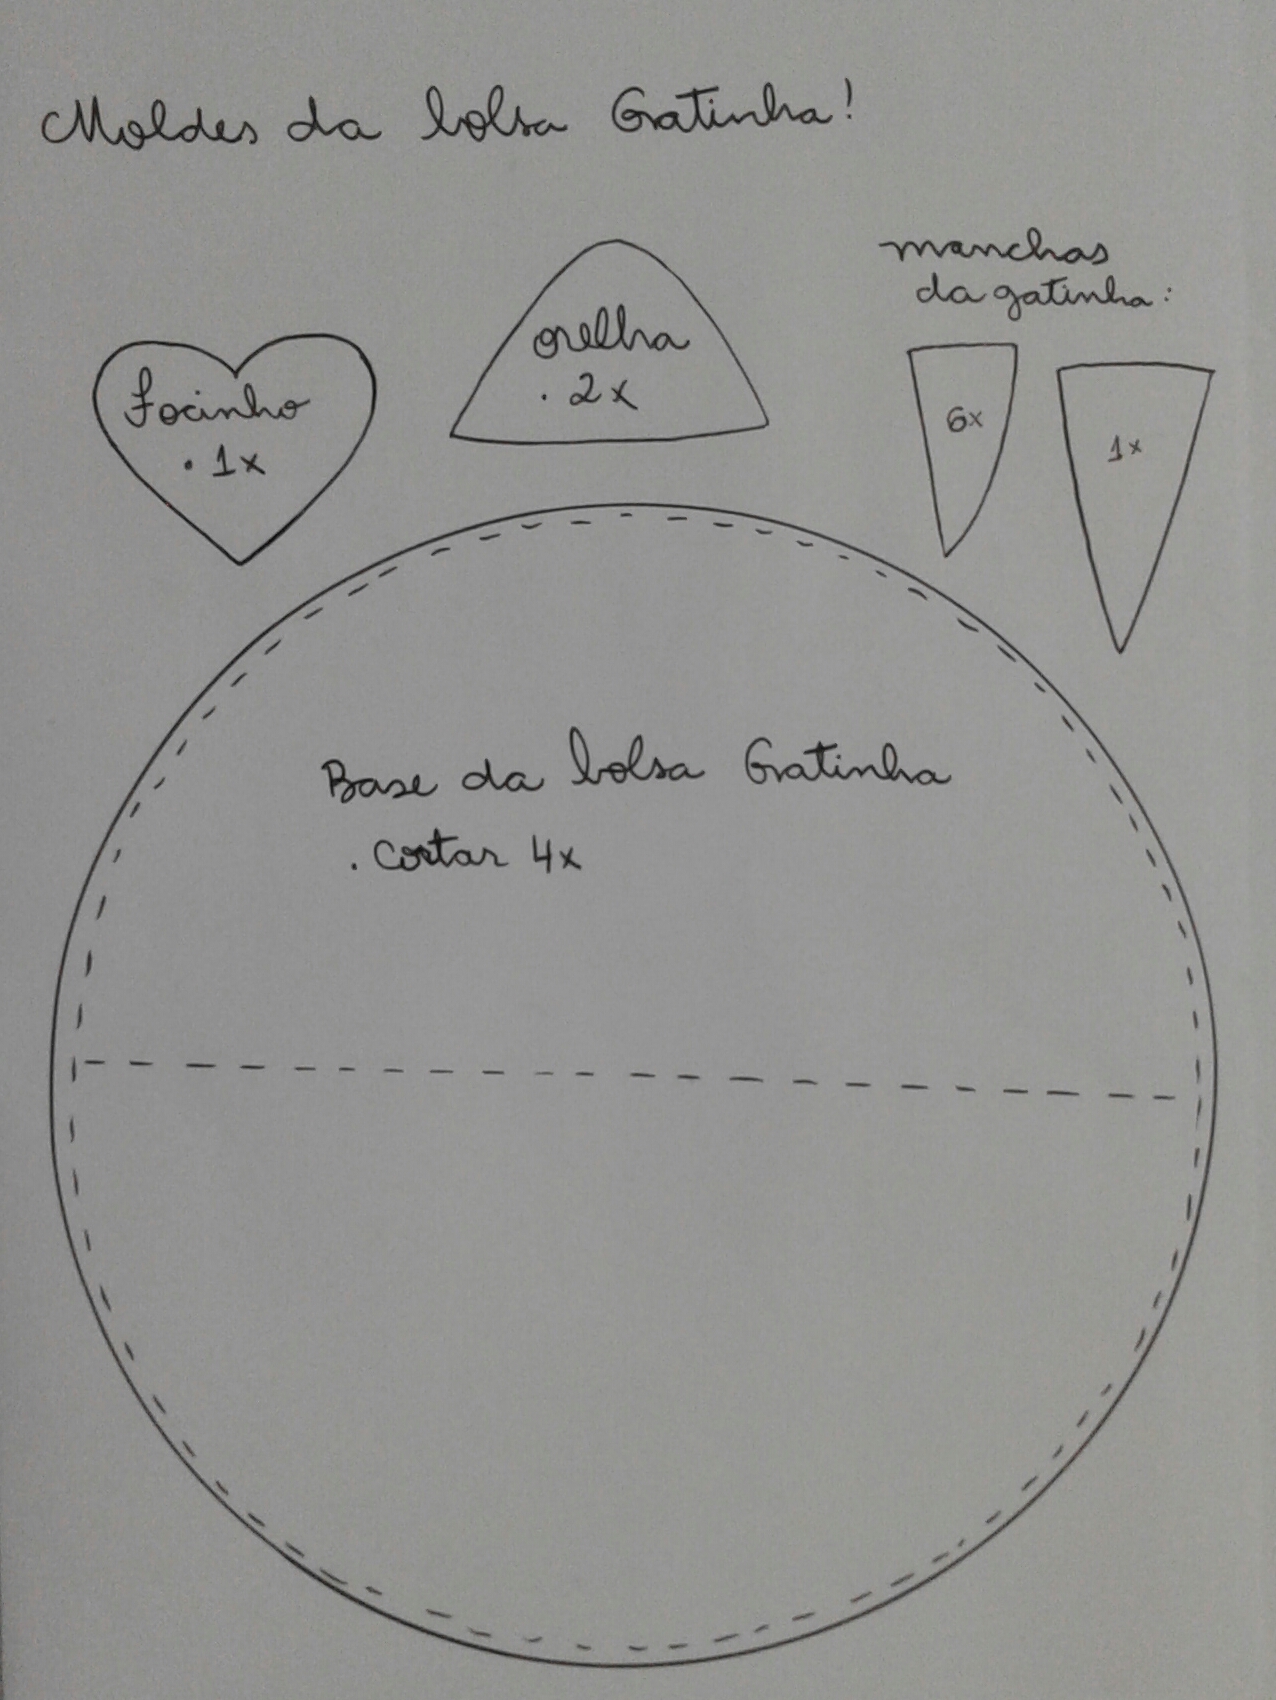 Moldes da bolsa Gatinha!
manchas
da gatinha:
orelha
. 2x
focinho
. 1x
6x
1x
Base da bolsa Gatinha
. cortar 4x